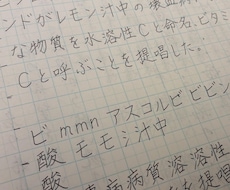 ンドがレモン汁中の壊血病
な物質を水溶性Cと命名、ビタミ
Cと呼ぶことを提唱した。
ビ mmn アスコルビ ビビン
酸 モモシ汁中
病病質溶溶性
を提唱